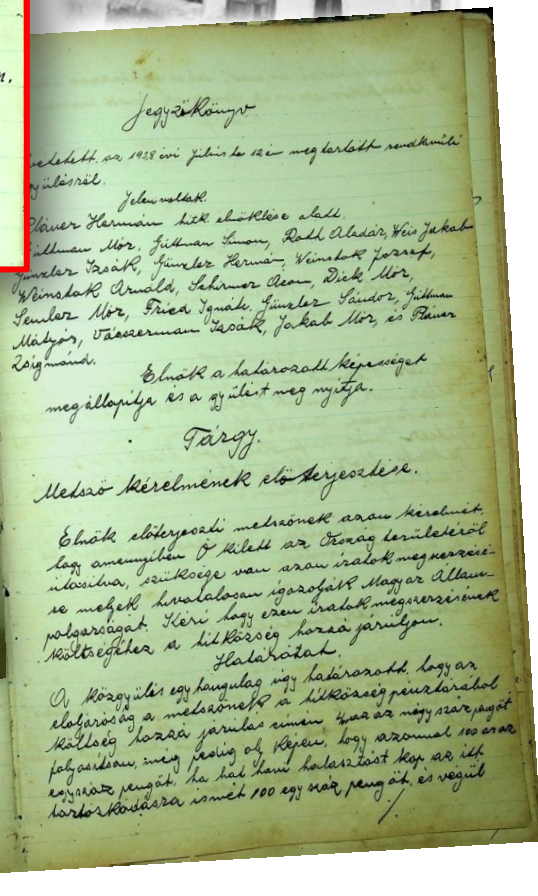 n.
Jegyzőkönyv
vetetett az 1928 évi Július hó 12 én megtartott rendkivűli
gyülésről.
Jelen voltak.
Pláner Hermán hitk elnöklése alatt.
Guttman Mór, Guttman Simon, Roth Aladár, Weis Jakab
Günzler Izsák, Günzler Hermán, Weinstok József,
Weinstok Arnáld, Schirmer Áron, Dick Mór,
Semler Mór, Fried Ignátz, Günzler Sándor, Guttman
Mátyás, Vácszerman Izsák, Jakab Mór, és Pláner
Zsigmánd.
Elnök a határozatt képességet
megállapitja és a gyülést meg nyitja.
Tárgy.
Metsző kérelmének elő terjesztése.
Elnök előterjeszti metszőnek azan kérelmét,
hogy amennyiben Ő kilett az Ország területéről
utasitva, szüksége van azan iratok megszerzésé-
se melyek hivatalosan igazolják Magyar Állam-
polgarságat. Kéri hogy ezen iratok megszerzésének
költségéhez a hitközség hozzá járuljon.
Határozat.
A közgyülés egyhangulag ugy határozatt, hogy az
elöljáróság a metszőnek a hitközség pénztárából
költség hozzá járulás cimen azaz négy száz pengőt
folyositson, még pedig oly képen, hogy azonnal 100 azaz
egyszáz pengőt, ha hat havi halasztást kap az itt
tartoskodásza ismét 100 egy száz pengőt, és végül